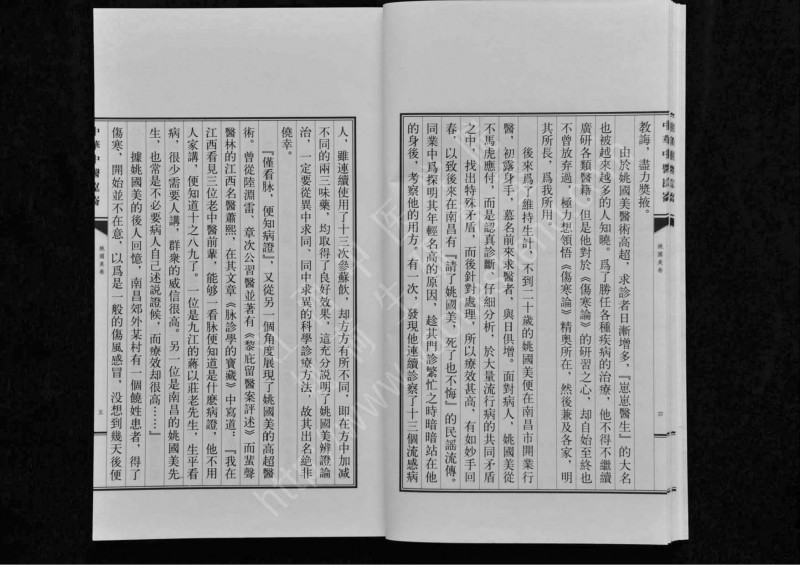 教誨，盡力獎掖。
由於姚國美醫術高超，求診者日漸增多，『崽崽醫生』的大名
也被越來越多的人知曉。爲了勝任各種疾病的治療，他不得不繼續
廣研各類醫籍，但是他對於《傷寒論》的研習之心，却自始至終也
不曾放弃過，極力想領悟《傷寒論》精奧所在，然後兼及各家，明
其所長，爲我所用。
後來爲了維持生計，不到二十歲的姚國美便在南昌市開業行
醫，初露身手，慕名前來求醫者，與日俱增。面對病人，姚國美從
不馬虎應付，而是認真診斷，仔細分析，於大量流行病的共同矛盾
之中，找出特殊矛盾，而後針對處理，所以療效甚高，有如妙手回
春，以致後來在南昌有『請了姚國美，死了也不悔』的民謡流傳。
同業中爲探明其年輕名高的原因，趁其門診繁忙之時暗暗站在他
的身後，考察他的用方。有一次，發現他連續診察了十三個流感病
中華中醫昆侖
姚國美卷
四
人，雖連續使用了十三次參蘇飲，却方方有所不同，即在方中加減
不同的兩三味藥，均取得了良好效果，這充分説明了姚國美辨證論
治，一定要從異中求同，同中求異的科學診療方法，故其出名絶非
僥幸。
『僅看脉，便知病證』，又從另一個角度展現了姚國美的高超醫
術。曾從陸淵雷、章次公習醫並著有《黎庇留醫案評述》而蜚聲
醫林的江西名醫蕭熙，在其文章《脉診學的寶藏》中寫道：『我在
江西看見三位老中醫前輩，能够一看脉便知道是什麽病證，他不用
人家講，便知道十之八九了。一位是九江的蔣以莊老先生，生平看
病，很少需要人講，群衆的威信很高。另一位是南昌的姚國美先
生，也常是不必要病人自己述説證候，而療效却很高……』
據姚國美的後人回憶，南昌郊外某村有一個饒姓患者，得了
傷寒，開始並不在意，以爲是一般的傷風感冒，没想到幾天後便
中華中醫昆侖
姚國美卷
五